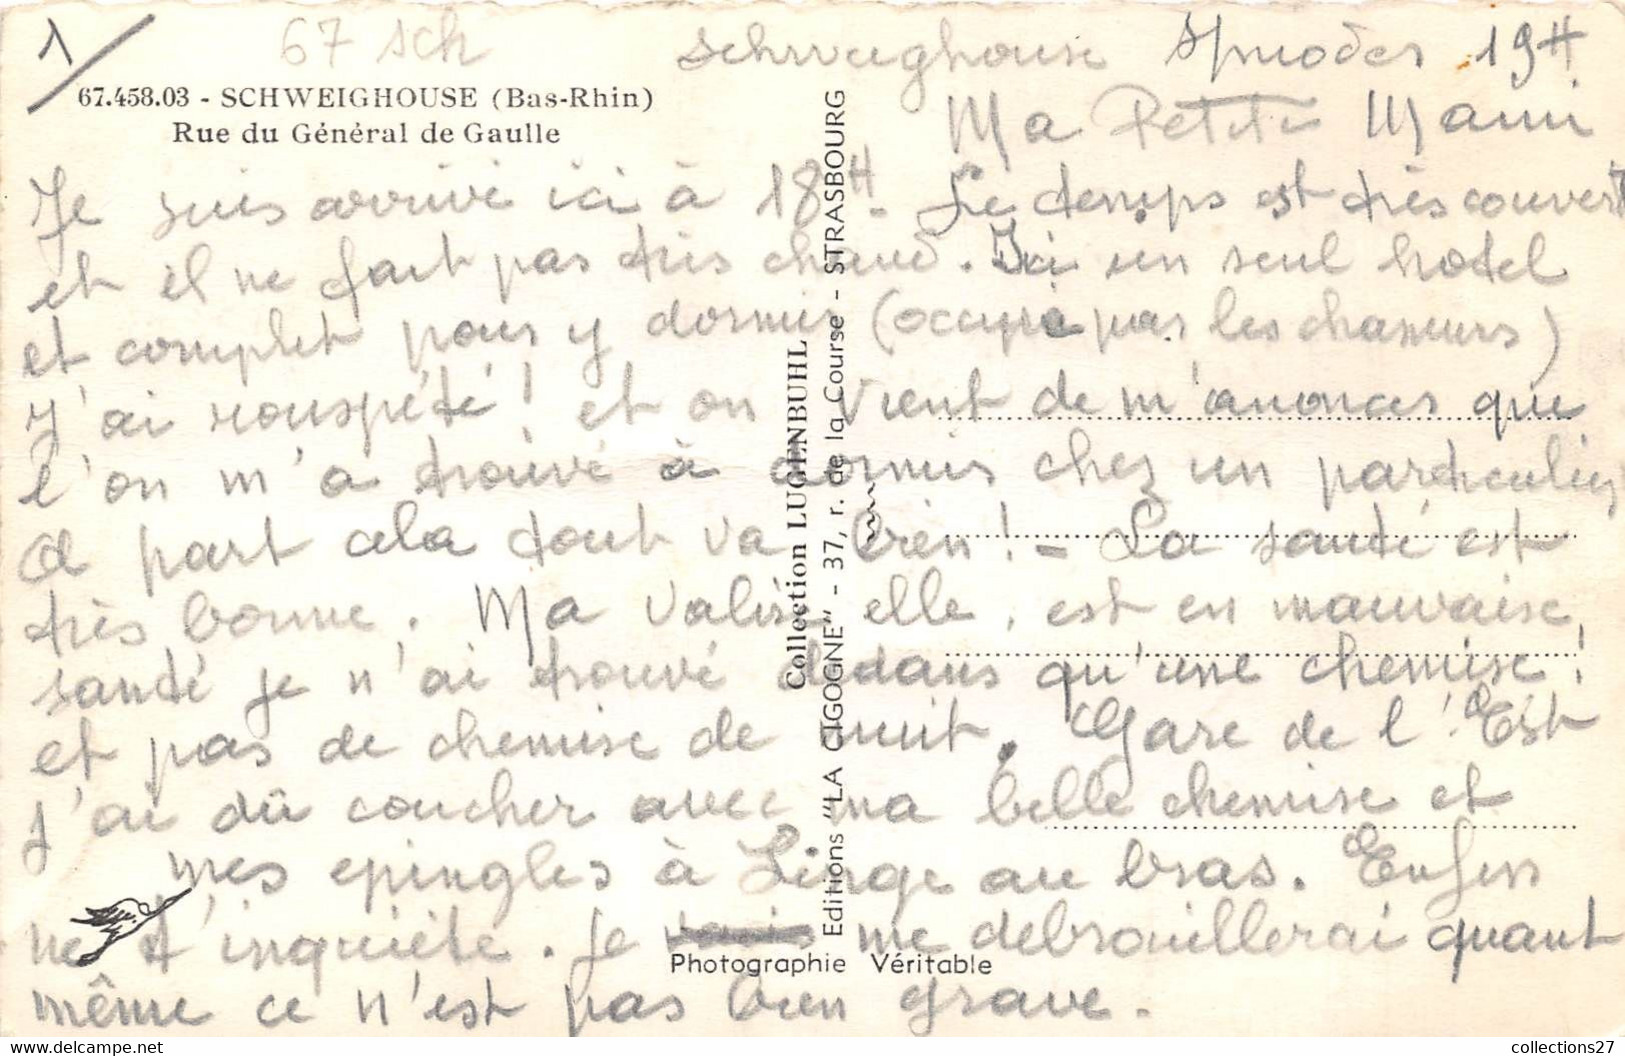 1/
67 Sch
Schweighouse Spmoder 19H
67.458.03 - SCHWEIGHOUSE (Bas-Rhin)
Rue du Général de Gaulle
Ma Petite Mami
Je suis arrivé ici à 18H. Le temps est très couvert
et il ne fait pas très chaud. Ici un seul hotel
et complet pour y dormir (occupé par les chasseurs)
J'ai rouspété! et on vient de m'anoncer que
l'on m'a trouvé à dormir chez un particulier
A part cela tout va bien! - La santé est
très bonne. Ma valise elle, est en mauvaise
santé je n'ai trouvé dedans qu'une chemise!
et pas de chemise de nuit. Gare de l'Est
j'ai dû coucher avec ma belle chemise et
mes epingles à Linge au bras. Enfin
ne t'inquiète. Je me debrouillerai quant
même ce n'est pas bien grave.
Collection LUGENBUHL
Editions "LA CIGOGNE" - 37, r. de la Course - STRASBOURG
Photographie Véritable
collections27